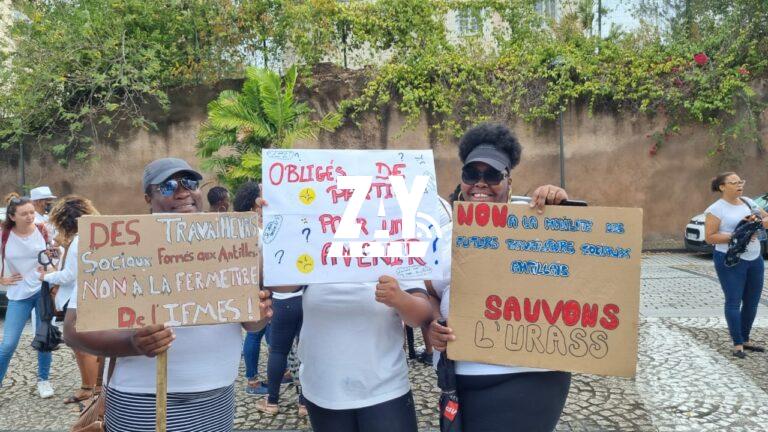 DES TRAVAILLEURS
SOCIAUX FORMÉS AUX ANTILLES
NON À LA FERMETURE
DE L'IFMES !
OBLIGÉS DE
PARTIR
POUR UN
AVENIR
ZAY
NON À LA MOBILITÉ DES
FUTURS TRAVAILLEURS SOCIAUX
ANTILLAIS
SAUVONS
L'URASS